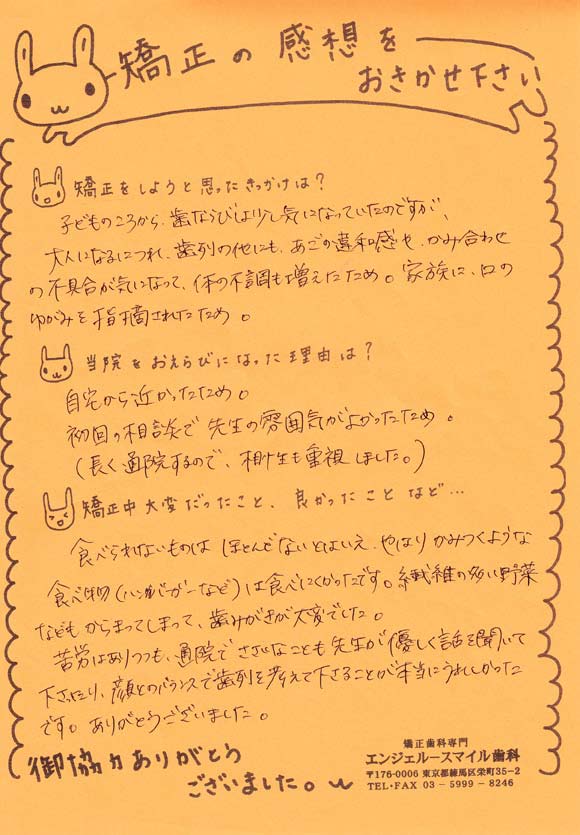 矯正の感想を
おきかせ下さい
矯正をしようと思ったきっかけは?
子どものころから、歯ならびは少し気になっていたのですが、
大人になるにつれ、歯列の他にも、あごの違和感や、かみ合わせ
の不具合が気になって、体の不調も増えたため。家族に、口の
ゆがみを指摘されたため。
当院をおえらびになった理由は?
自宅から近かったため。
初回の相談で先生の雰囲気がよかったため。
(長く通院するので、相性も重視しました。)
矯正中大変だったこと、良かったことなど…
食べられないものはほとんどないとはいえ、やはりかみつくような
食べ物(ハンバーガーなど)は食べにくかったです。繊維の多い野菜
などもからまってしまって、歯みがきが大変でした。
苦労はありつつも、通院でささいなことも先生が優しく話を聞いて
下さったり、顔とのバランスで歯列を考えて下さることが本当にうれしかった
です。ありがとうございました。
御協力ありがとう
ございました。
矯正歯科専門
エンジェルスマイル歯科
〒176-0006 東京都練馬区栄町35-2
TEL・FAX 03-5999-8246